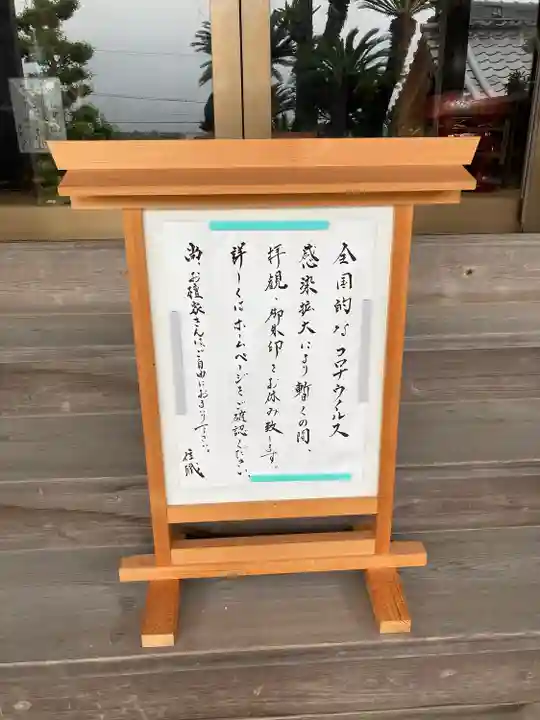 全国的なコロナウィルス
感染拡大により暫くの間、
拝観、御朱印をお休み致します。
詳しくはホームページをご確認ください。
尚、お檀家さんはご自由にお参り下さい。
住職